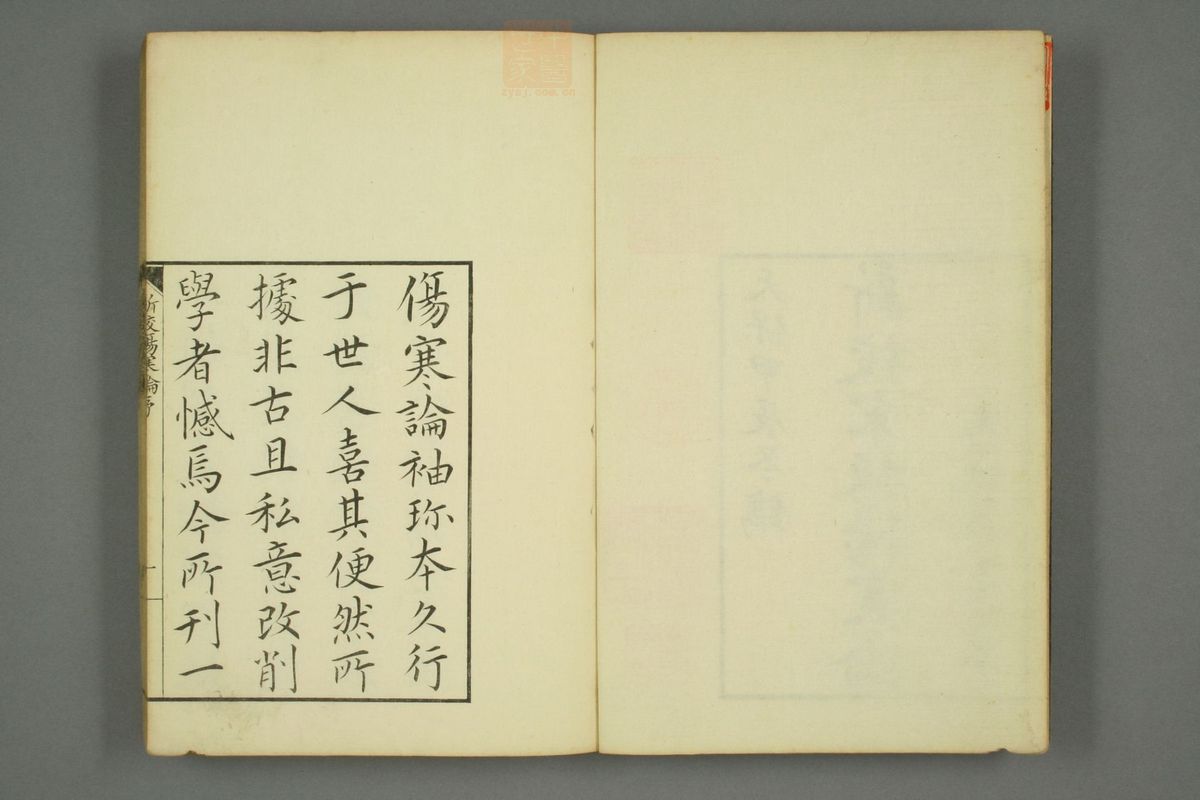 傷寒論袖珎本久行
于世人喜其便然所
據非古且私意改削
學者憾焉今所刊一
新校傷寒論序
一
zysj.com.cn